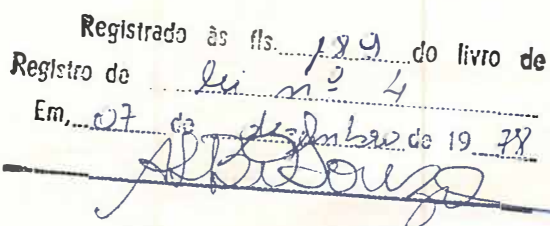 Registrado às fls. 189 do livro de
Registro de lei nº 4
Em, 07 de dezembro de 1978